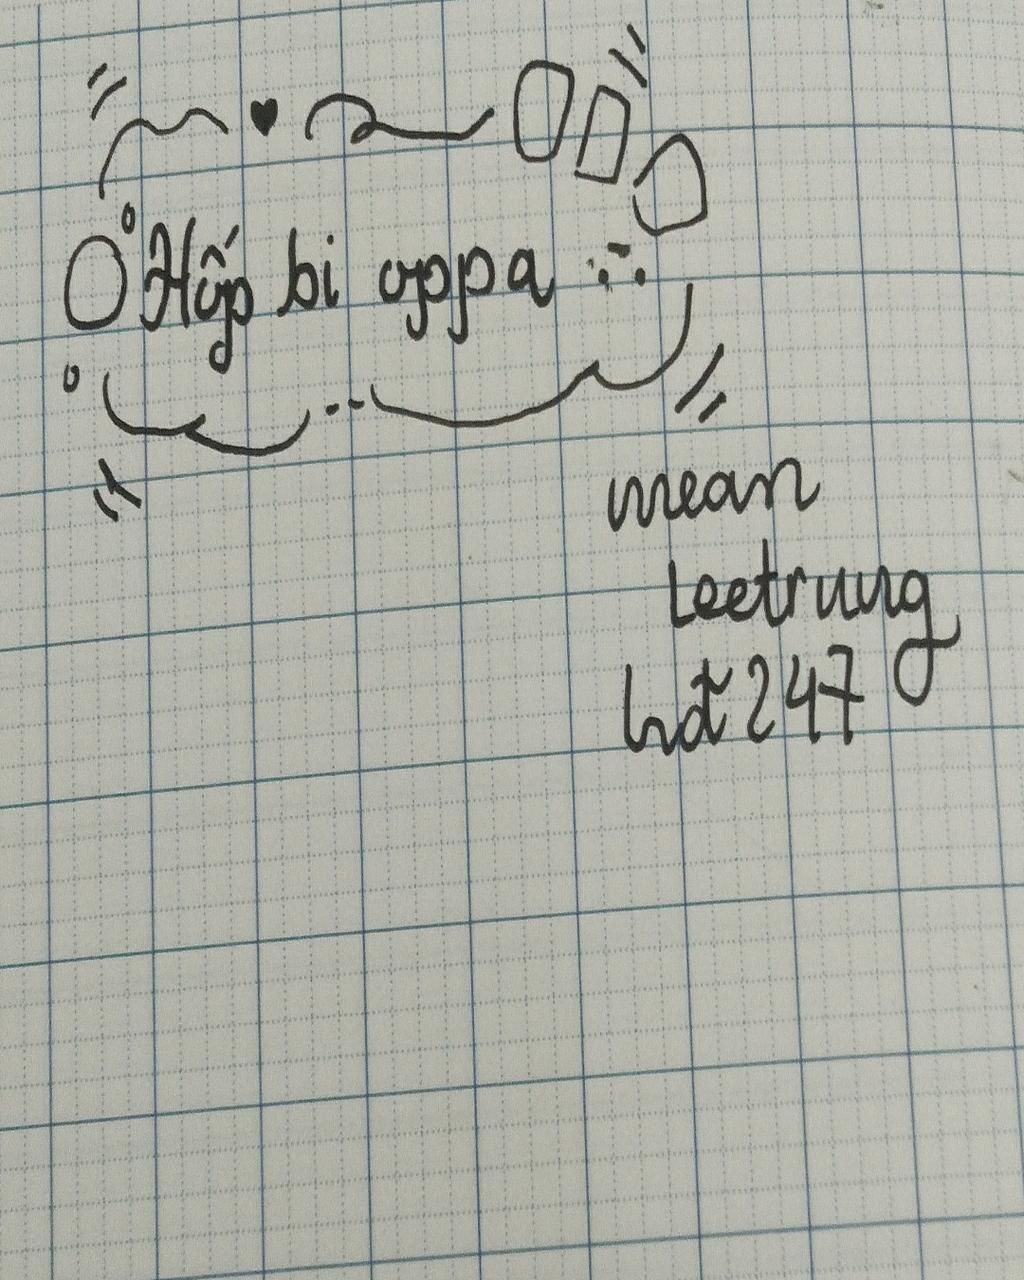 Hốp bi oppa
mean
Leetrung
hđ247